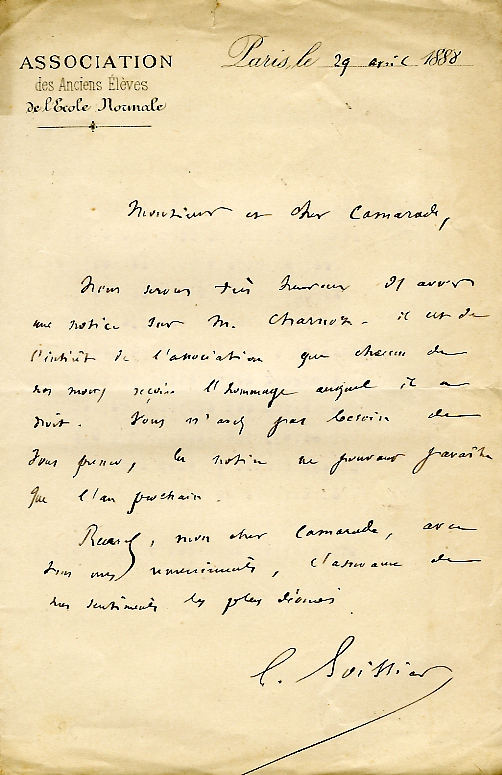 ASSOCIATION
des Anciens Élèves
de l'Ecole Normale
Paris, le 29 avril 1888
Monsieur et cher Camarade,
Nous serons très heureux d'avoir
une notice sur M. Charnoz. il est de
l'intérêt de l'association que chacun de
nos morts reçoive l'hommage auquel il a
droit. Vous n'avez pas besoin de
vous presser, la notice ne pouvant paraître
que l'an prochain.
Recevez, mon cher Camarade, avec
tous mes remerciements, l'assurance de
nos sentiments les plus dévoués
G. Boissier